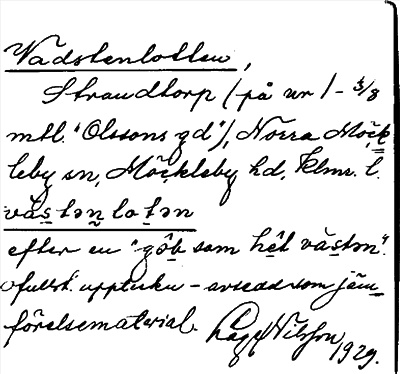 Vadstenlotten,
Strandtorp (på nr 1 - 3/8
mtl. "Olssons gd"), Norra Möck
leby sn, Möckleby hd, Klmr. l.
vås̱tən̰lo ṯən
efter en "gô̱b som hê̱t vås̱tən".
fullst. uppteckn - avsedd som jäm
förelsematerial. Nilsson 1929.